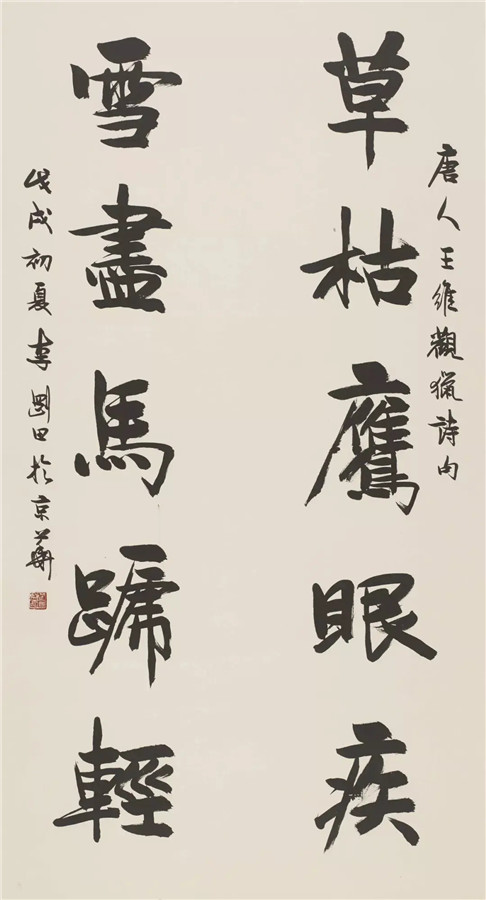 唐人王維觀獵詩句
草枯鷹眼疾
雪盡馬蹏輕
戊戌初夏李剛田於京華